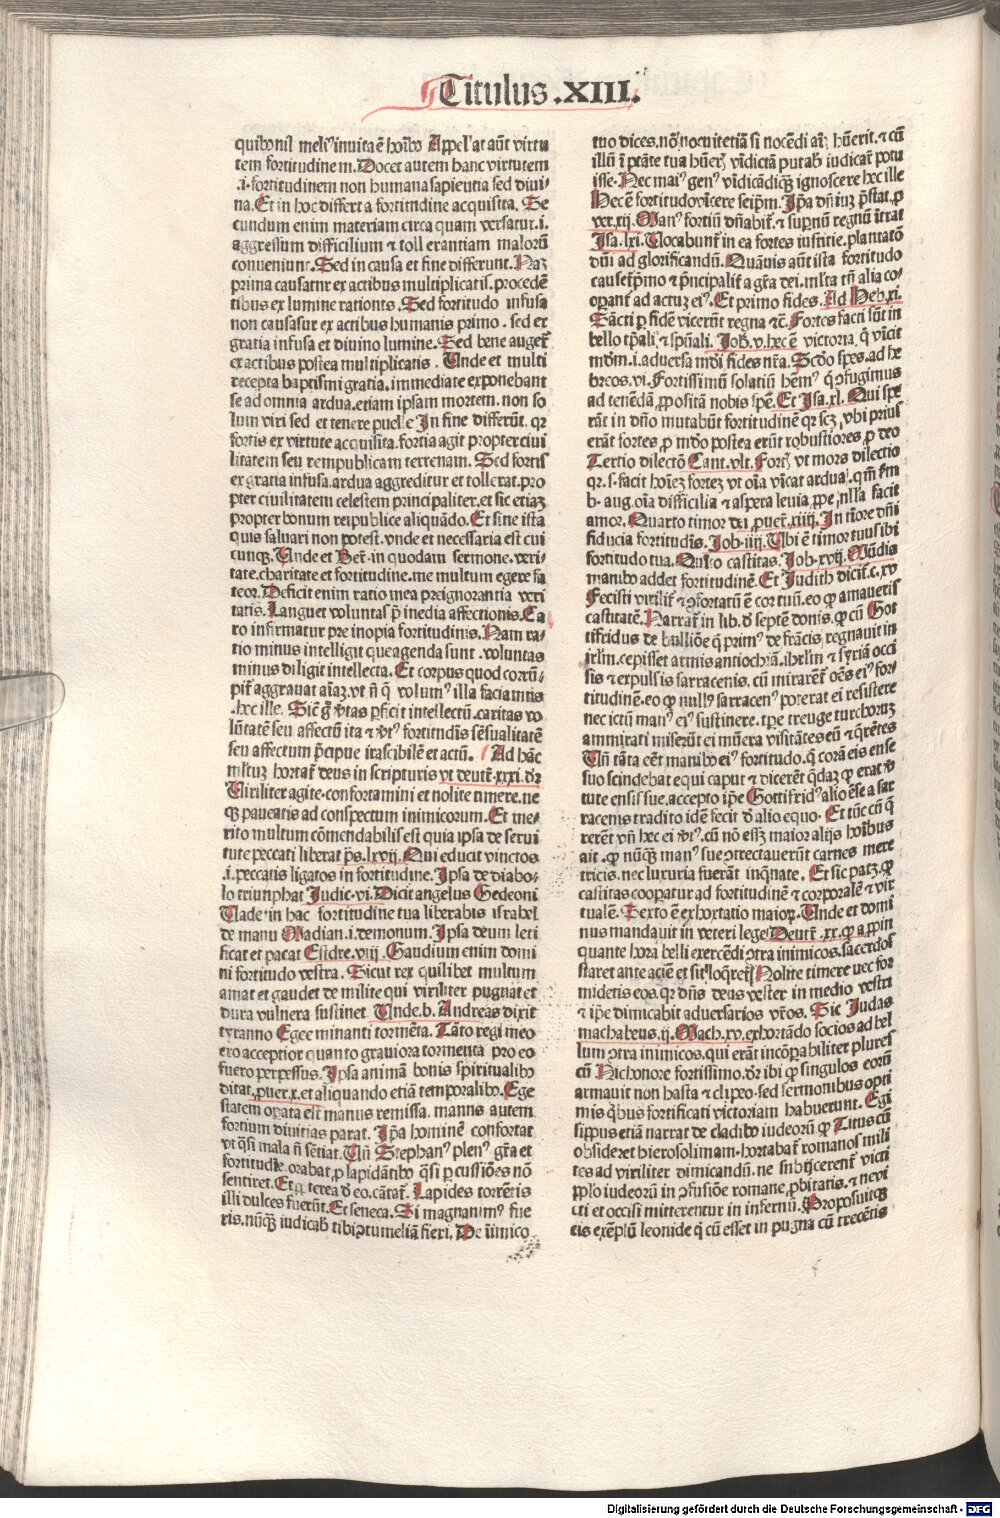 Titulus .XIII.
quibꝰ nil meliꝰ in vita ē hoībꝰ Appellat aūt virtu
tem fortitudinem. Docet autem hanc virtutem
.i. fortitudinem non humana sapientia sed diui-
na. Et in hoc differt a fortitudine acquisita. Se
cundum enim materiam circa quam versatur .i.
aggressum difficilium ⁊ tollerantiam malorū
conueniunt. Sed in causa et fine differunt. Naꝫ
prima causatur ex actibus multiplicatis. procedē
tibus ex lumine rationis. Sed fortitudo infusa
non causatur ex actibus humanis primo. sed ex
gratia infusa et diuino lumine. Sed bene auget᷑
ex actibus postea multiplicatis. Unde et multi
recepta baptismi gratia. immediate exponebant
se ad omnia ardua. etiam ipsam mortem. non so
lum viri sed et tenere puelle In fine differūt. qꝛ
fortis ex virtute acquisita. fortia agit propter ciui
litatem seu rempublicam terrenam. Sed fortis
ex gratia infusa. ardua aggreditur et tollerat. pro
pter ciuilitatem celestem principaliter. et sic etiaꝫ
propter bonum reipublice aliquādo. Et sine ista
quis saluari non potest. vnde et necessaria est cui
cunqꝫ. Unde et Ber̄. in quodam sermone. veri-
tate. charitate et fortitudine. me multum egere fa
teor. Deficit enim ratio mea pre ignorantia veri
tatis. Languet voluntas p̄ inedia affectionis. Ca
ro infirmatur pre inopia fortitudinis. Nam ra-
tio minus intelligit que agenda sunt. voluntas
minus diligit intellecta. Et corpus quod corrū-
pit᷑ aggrauat aīaꝫ. vt n̄ q̄ volumꝰ illa faciamus
.hec ille. Sic̄ g̊ v̄itas ꝑficit intellectū. caritas vo
lūtatē seu affectū ita ⁊ v̄tꝰ fortitudīs sēsualitatē
seu affectum p̄cipue irascibilē et actū. Ad hāc
ml̄tuꝫ hortat᷑ deus in scripturis vt deutr̄. xxxi. dꝛ
Uiriliter agite. confortamini et nolite timere. ne
qꝫ paueatis ad conspectum inimicorum. Et me-
rito multum cōmendabilis est quia ipsa de serui
tute peccati liberat p̄s. lxvij. Qui educit vinctos
.i. peccatis ligatos in fortitudine. Ipsa de diabo-
lo triumphat Judic. vi. Dicit angelus Gedeoni
Uade in hac fortitudine tua liberabis israhel
de manu Madian .i. demonum. Ipsa deum leti
ficat et pacat Esdre. viij. Gaudium enim domi
ni fortitudo vestra. Sicut rex quilibet multum
amat et gaudet de milite qui viriliter pugnat et
dura vulnera sustinet Unde. b. Andreas dixit
tyranno Egee minanti tormēta. Tāto regi meo
ero acceptior quanto grauiora tormenta pro eo
fuero perpessus. Ipsa animā bonis spiritualibꝰ
ditat, puer. x. et aliquando etiā temporalibꝰ. Ege
statem opata est manus remissa. manus autem
fortium diuitias parat. Ip̄a hominē confortat
vt q̄si mala n̄ sētiat. Un̄ Stephanꝰ plenꝰ gr̄a et
fortitudīe. orabat ꝓ lapidātibꝰ q̄si ꝑcussiões nō
sentiret. Et ꝓpterea ð eo. cātat᷑. Lapides torrētis
illi dulces fuerūt. Et seneca. Si magnanimꝰ fue
ris. nūqꝫ iudicab̄ tibi ꝯtumeliā fieri. De īimico
tuo dices. nō nocuit etiā si nocēdi aīꝫ hūerit. ⁊ cū
illū ī ptāte tua hūeꝭ vīdictā putab̄ iudicar̄ potu
isse. Nec maiꝰ genꝰ vīdicādi qꝫ ignoscere hec ille
Hec ē fortitudo vīcere seip̄m. Ip̄a dn̄iuꝫ p̄stat. ꝓ
ver. xij. Manꝰ fortiū dn̄abit᷑. ⁊ supnū regnū ītrat
Isa. lxi. Uocabunt᷑ in ea fortes iustitie. plantatō
dn̄i ad glorificandū. Quāuis aūt ista fortitudo
causet᷑ pͥmo ⁊ pͥncipalit᷑ a gr̄a dei. ml̄ta tn̄ alia co-
oꝑant᷑ ad actuꝫ eiꝰ. Et primo fides. Ad Heb. xi.
Sācti ꝑ fidē vicerūt regna ⁊c̄. Fortes facti sūt in
bello tp̄ali ⁊ sp̄uali. Joħ. v. hec ē victoria. q̄ vīcit
mūdm̄ .i. aduersa mūdi fides nr̄a. Scd̄o spes. ad he
breos. vi. Fortissimū solatiū hēmꝰ q̇ ꝯfugimus
ad tenēdā ꝓpositā nobis spē. Et Isa. xl. Qui spe
rāt in dn̄o mutabūt fortitudinē qꝛ scꝫ, vbi prius
erāt fortes, ꝑ mūdo postea erūt robustiores ꝓ deo
Tertio dilectō Cant. vlt. Fort᷑ vt mors dilectio
qꝛ .s. facit hoīeꝫ forteꝫ vt oīa vīcat ardua. qm̄ ẜm
b. aug. oīa difficilia ⁊ aspera leuia ꝓpe nulla facit
amor. Quarto timor dei, ꝓuer̄. xiiij. In tīore dn̄i
fiducia fortitudīs. Job. iiij. Ubi ē timor tuus ibi
fortitudo tua. Quīto castitas. Job. xvij. Mūdis
manibꝰ addet fortitudinē. Et Judith dicit᷑. c. xv
Fecisti virilit᷑ ⁊ ꝯfortatū ē cor tuū. eo ꝙ amaueris
castitatē. Narrat᷑ in lib. ð septē donis. ꝙ cū Got
tifridus de bulliōe q̇ primꝰ de frācis regnauit in
irl̄m. cepisset armis antiochiā. ihrl̄m ⁊ syriā occi
sis ⁊ expulsis sarracenis. cū mirarēt᷑ oēs eiꝰ for-
titudinē. eo ꝙ nullꝰ sarracenꝰ poterat ei resistere
nec ictū manꝰ eiꝰ sustinere. tpe treuge turchoruꝫ
ammirati miserūt ei mūera visitātes eū ⁊ q̄rētes
Un̄ tāta eēt manibꝰ eiꝰ fortitudo. q̇ corā eis ense
suo scindebat equi caput ⁊ dicerēt q̇daꝫ ꝙ erat v̄
tute ensis sue. accepto ip̄e Gottifridꝰ alio ēse a sar
racenis tradito idē fecit ð alio equo. Et tūc cū q̄
rerēt vn̄ hec ei v̄tꝰ. cū nō esꝫ maior alijs hoībus
ait. ꝙ nūqꝫ manꝰ sue ꝯtrectauerūt carnes mere
tricis. nec luxuria fuerāt inq̇nate. Et sic patꝫ. ꝙ
castitas cooꝑatur ad fortitudinē ⁊ corporalē ⁊ vir
tualē. Sexto ē exhortatio maioꝝ. Unde et domi
nus mandauit in veteri lege Deutr̄. xx. ꝙ appin
quante hora belli exercēdi ꝯtra inimicos. sacerdos
staret ante aciē et sic loq̄ret᷑ Nolite timere nec for
midetis eos. qꝛ dn̄s deus vester in medio vestri
⁊ ip̄e dimicabit aduersarios vr̄os. Sic Judas
machabeus. ij. Mach. xv. exhortādo socios ad bel
lum ꝯtra inimicos. qui erāt incōꝑabiliter plures
cū Nichonore fortissimo. dꝛ ibi ꝙ singulos eorū
armauit non hasta ⁊ clipeo. sed sermonibus opti
mis q̇bus fortificati victoriam habuerunt. Egi
sippus etiā narrat de cladibꝰ iudeorū ꝙ Titus cū
obsideret hierosolimam. hortabat᷑ romanos mili
tes ad viriliter dimicandū. ne subijcerent᷑ victi
pplo iudeorū in ꝯfusiōe romane, ꝓbitatis. ⁊ ne vi
cti et occisi mitterentur in infernū. Proposuitqꝫ
eis exēplū leonide q̇ cū esset in pugna cū trecētis